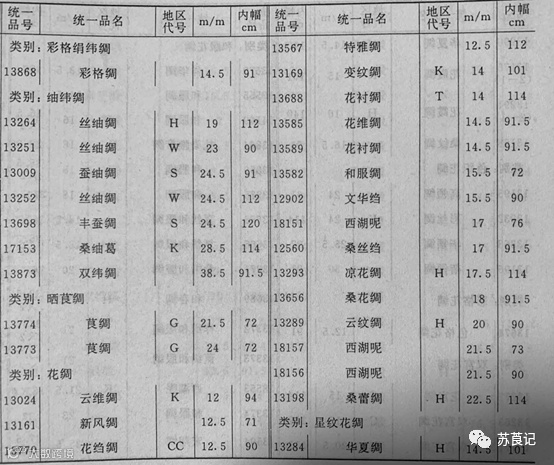 统一品号 统一品名 地区代号 m/m 内幅cm
类别：彩格绢纬绸
13868 彩格绸 14.5 91
类别：䌷纬绸
13264 丝䌷绸 H 19 112
13251 丝䌷绸 W 23 90
13009 蚕䌷绸 S 24.5 91
13252 丝䌷绸 W 24.5 112
13698 丰蚕绸 S 24.5 120
17153 桑䌷葛 K 28.5 114
13873 双纬绸 38.5 91.5
类别：晒莨绸
13774 莨绸 G 21.5 72
13773 莨绸 G 24 72
类别：花绸
13024 云维绸 K 12 94
13161 新风绸 12.5 71
15770 花绉绸 CC 12.5 90
统一品号 统一品名 地区代号 m/m 内幅cm
13567 特雅绸 12.5 112
13169 变纹绸 K 14 101
13688 花衬绸 T 14 114
13585 花维绸 14.5 91.5
13589 花衬绸 14.5 91.5
13582 和服绸 15.5 72
12902 文华绉 15.5 90
18151 西湖呢 17 76
12560 桑丝绉 17 91.5
13293 凉花绸 H 17.5 114
13656 桑花绸 18 91.5
13289 云纹绸 H 20 90
18157 西湖呢 21.5 73
18156 西湖呢 21.5 90
13198 桑蕾绸 H 22.5 114
类别：星纹花绸
13284 华夏绸 H 14.5 101
苏莨记